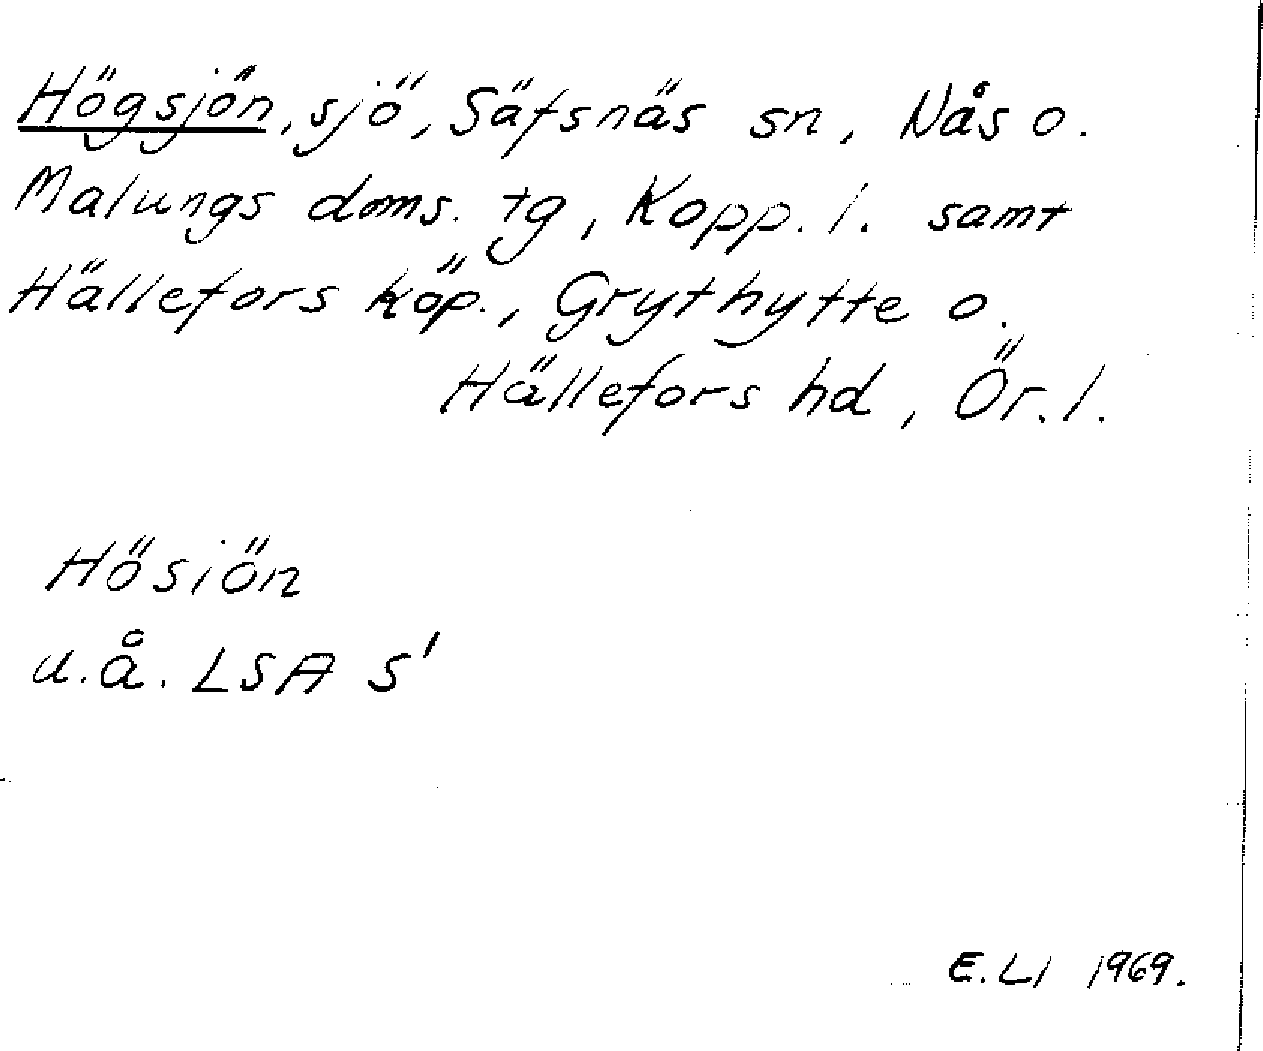 Högsjön, sjö, Säfsnäs sn, Nås o.
Malungs doms. tg, Kopp. l. samt
Hällefors köp., Grythytte o.
Hällefors hd, Ör. l.
Hösiön
u.å. LSA S'
E. LI 1969.